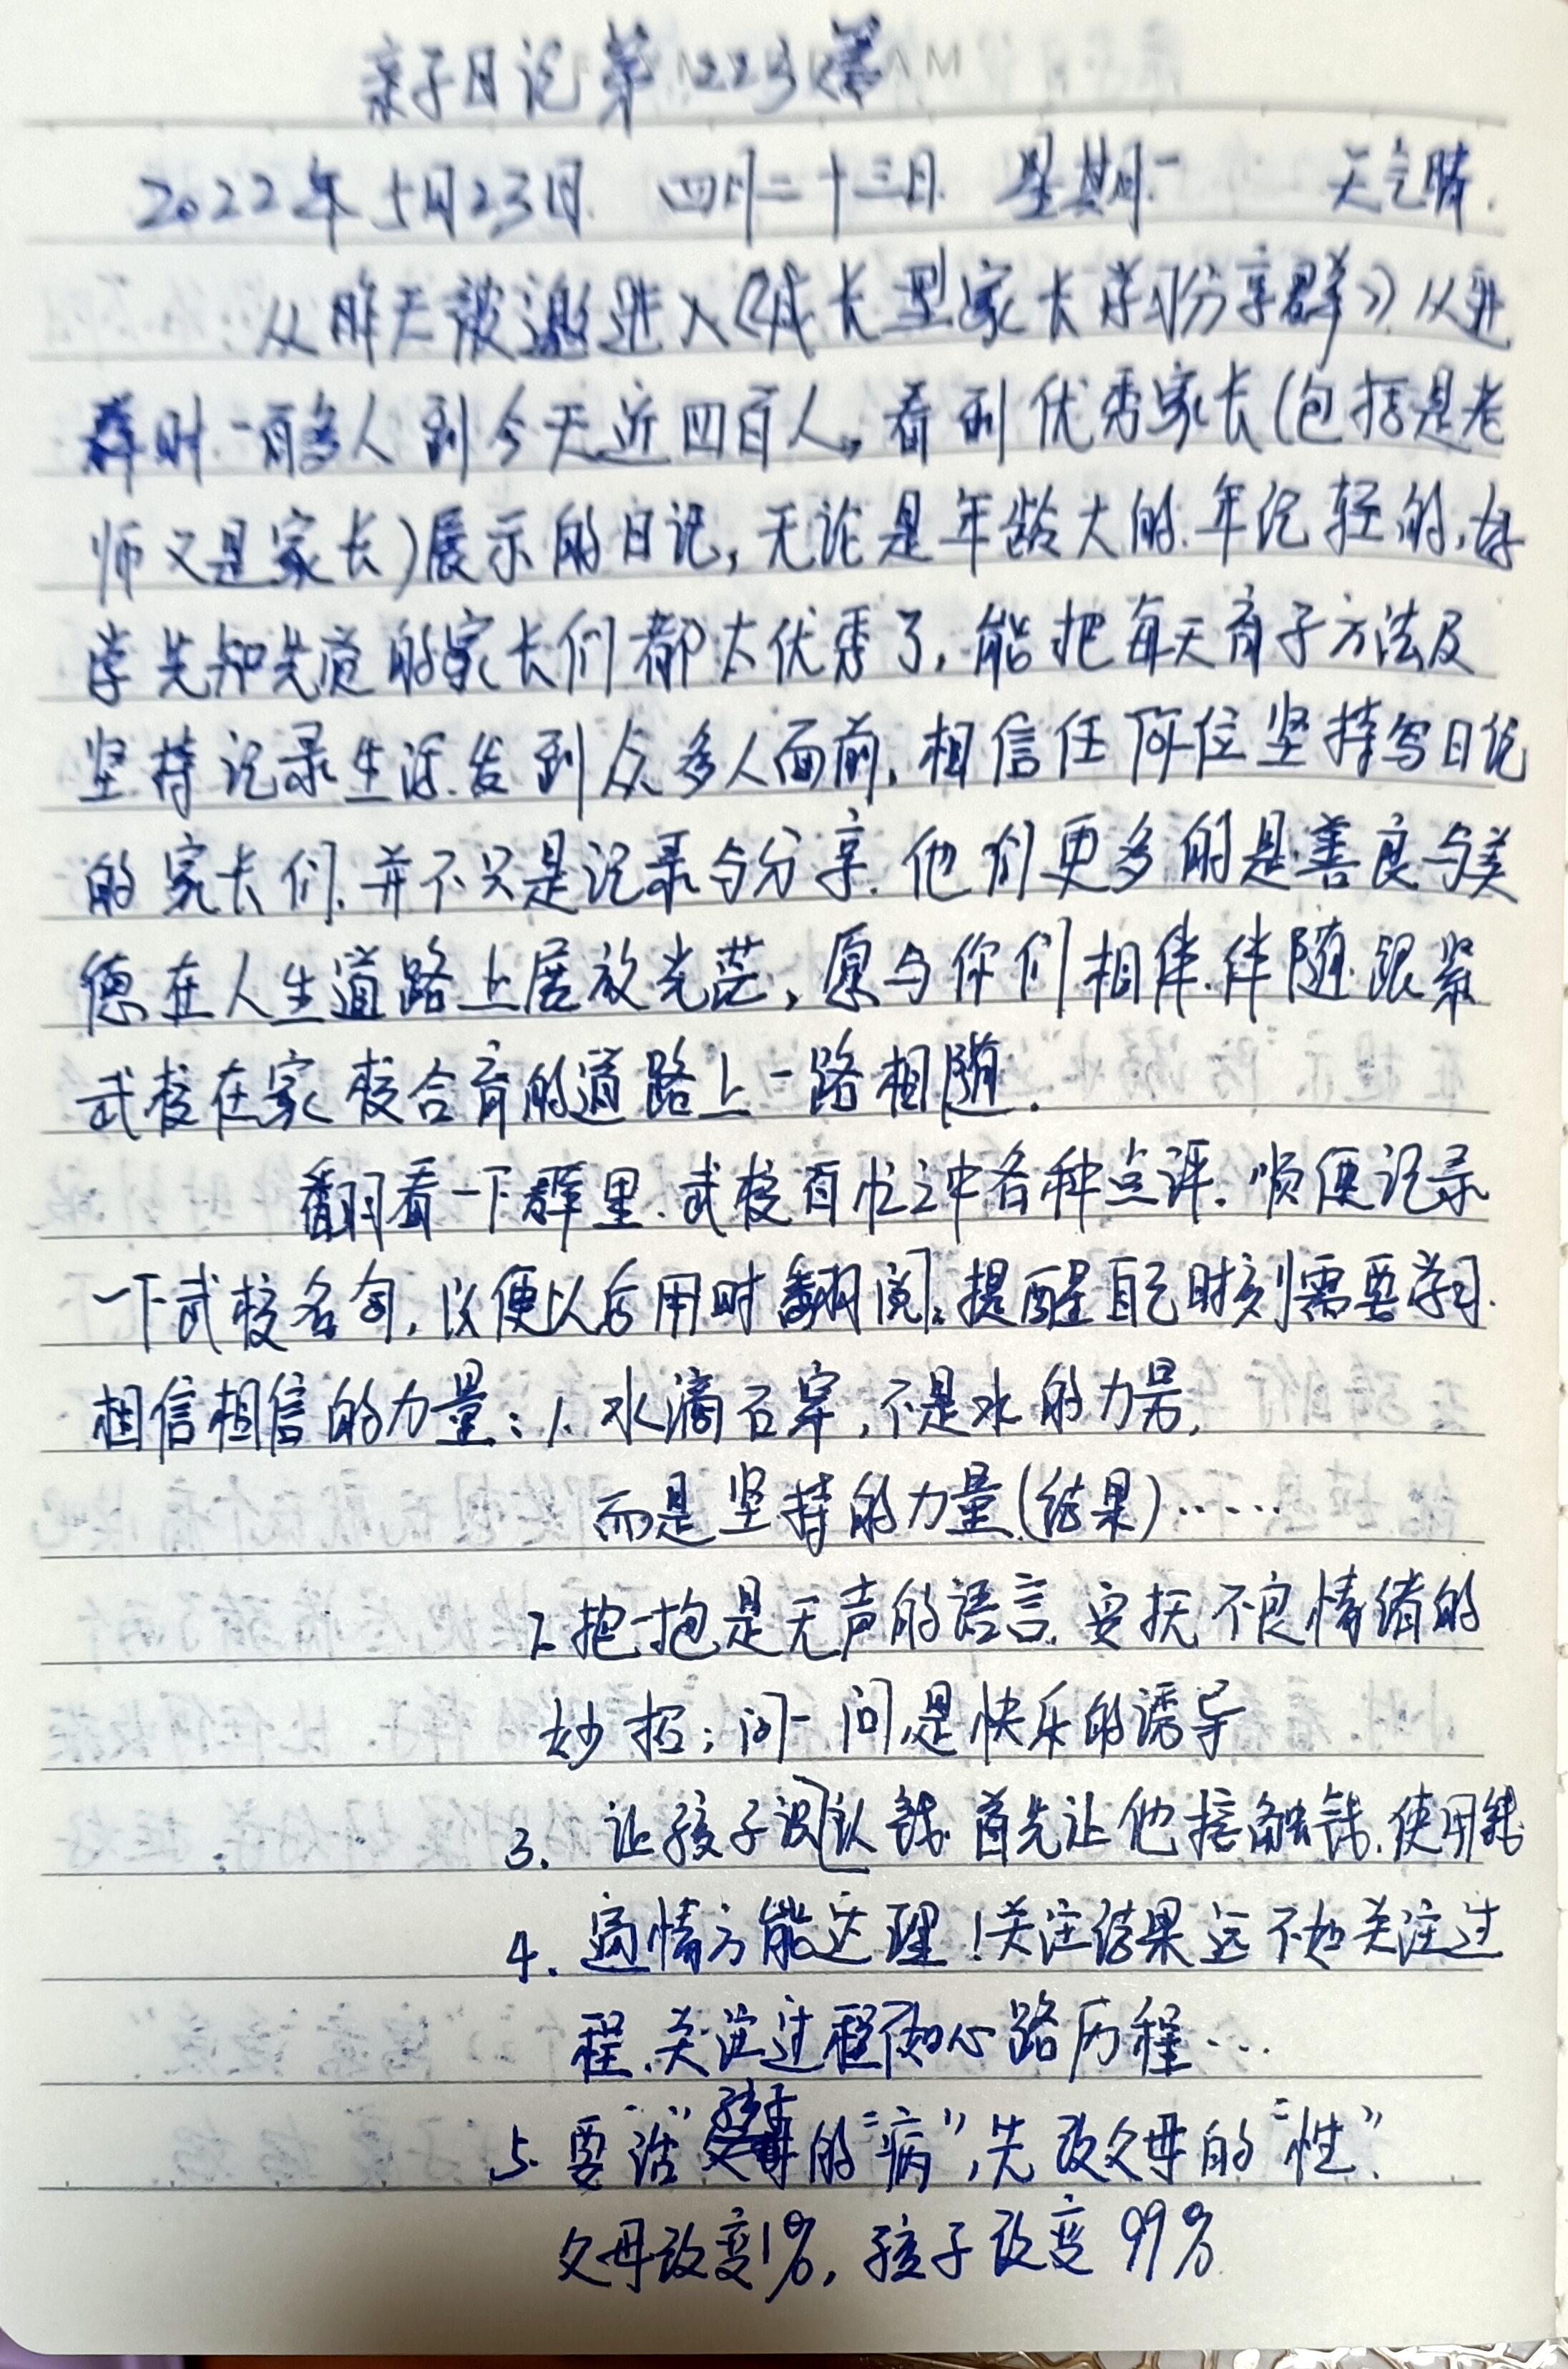 亲子日记第223篇
2022年5月23日 四月二十三日 星期一 天气晴.
从昨天被邀进入《成长型家长学习分享群》从进
群时一百多人到今天近四百人,看到优秀家长(包括是老
师又是家长)展示的日记,无论是年龄大的.年记轻的,好
学先知先觉的家长们都太优秀了,能把每天育子方法及
坚持记录生活.发到众多人面前,相信任何位坚持写日记
的家长们.并不只是记录与分享.他们更多的是善良与美
德在人生道路上展放光芒,愿与你们相伴.伴随.跟紧
武校在家校合育的道路上一路相随.
翻看一下群里.武校百忙之中各种点评.顺便记录
一下武校名句,以便以后用时翻阅.提醒自己时刻需要学习.
相信相信的力量:1.水滴石穿,不是水的力量,
而是坚持的力量(结果)……
2.抱一抱是无声的语言.安抚不良情绪的
妙招;问一问,是快乐的诱导
3. 让孩子认识钱.首先让他接触钱.使用钱
4. 通情方能达理!关注结果远不如关注过
程.关注过程不如心路历程…
5.要治"孩子的"病",先改父母的"性".
父母改变1%,孩子改变99%